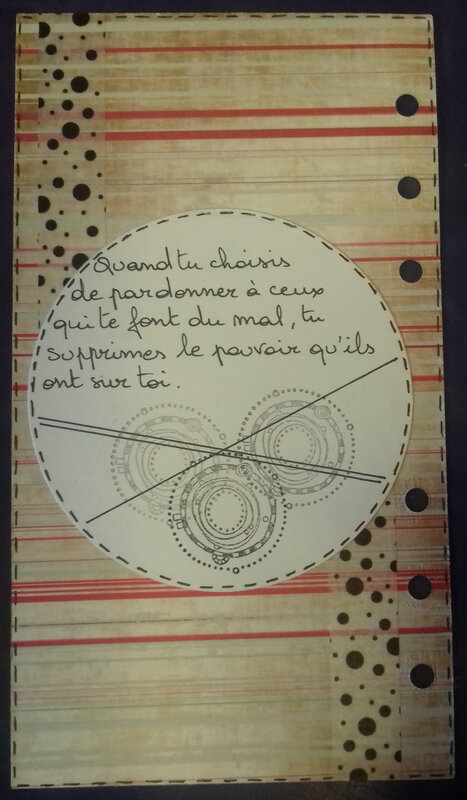 Quand tu choisis
de pardonner à ceux
qui te font du mal, tu
supprimes le pouvoir qu'ils
ont sur toi.